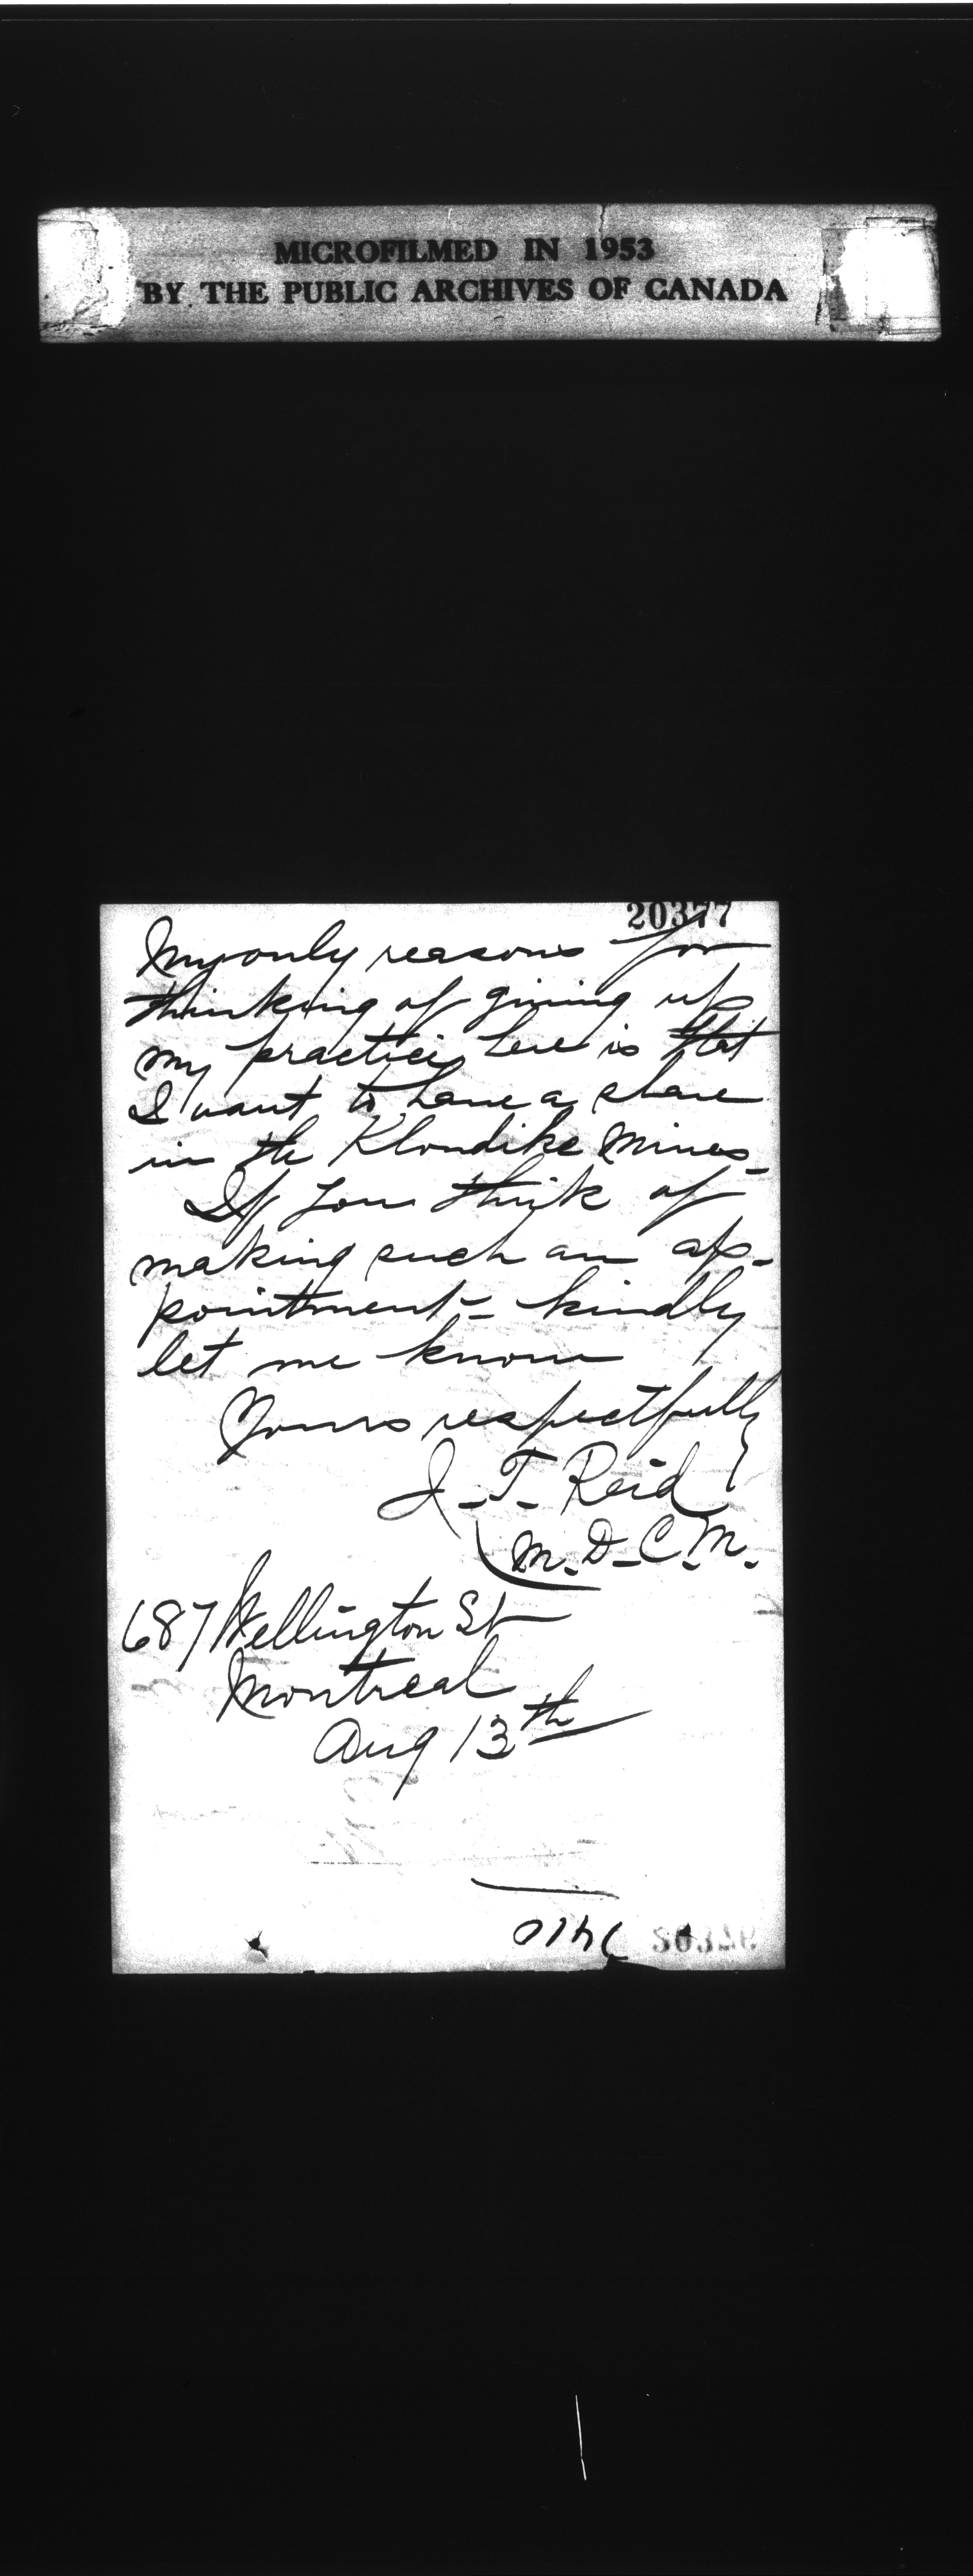 MICROFILMED IN 1953
BY THE PUBLIC ARCHIVES OF CANADA
20377
My only reasons for
thinking of giving up
my practice here is that
I want to have a share
in the Klondike Mines_
If you think of
making such an ap-
pointment - kindly
let me know
Yours respectfully
J. T. Reid
M.D.C.M.
687 Wellington St
Montreal
Aug 13th